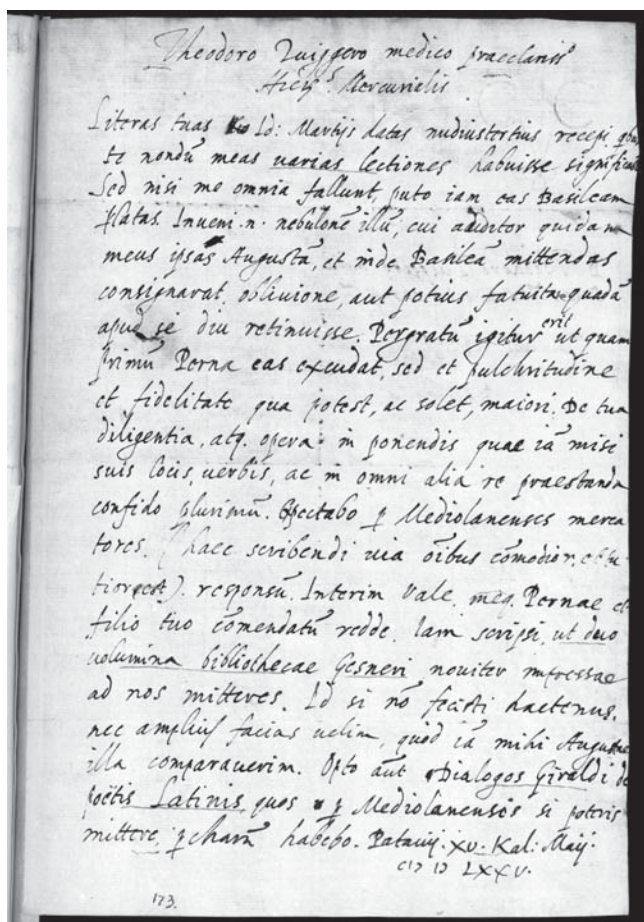 Theodoro Zuiggero medico praeclariss.º
Hier.s Mercurialis
Literas tuas Id: Martijs datas nudiustertius recepi
te nondū meas varias lectiones habuisse
Sed nisi me omnia fallunt, puto iam eas Basileam
platas. Inveni .n. nebulonē illū, cui aditor quidam
meus ipsas Augustā, et inde Basileā mittendas
consignarat, oblivione, aut potius fatuitate quadā
apud se diu retinuisse. Pergratū igitur erit ut quam
primū Perna eas excudat, sed et pulchritudine
et fidelitate qua potest, ac solet, maiori. De tua
diligentia, atq. opera in ponendis quae iā misi
suis locis, verbis, ac in omni alia re praestanda
confido plurimū. Expectabo p Mediolanenses merca
tores. (haec scribendi via oībus cōmodior, et tu
tior est). responsū. Interim Vale, meq. Pernae et
filio tuo cōmendatū redde. Iam scripsi, ut duo
volumina bibliothecae Gesneri noviter impressae
ad nos mitteres. Id si nō fecisti hactenus,
nec amplius facias velim, quod iā mihi Augustae
illa comparaverim. Opto aūt Dialogos Giraldi de
poëtis Latinis quos p Mediolanensēs si poteris
mittere, p charū habebo. Patavij. XV. Kal: Maij.
CIƆ IƆ LXXV.
173.